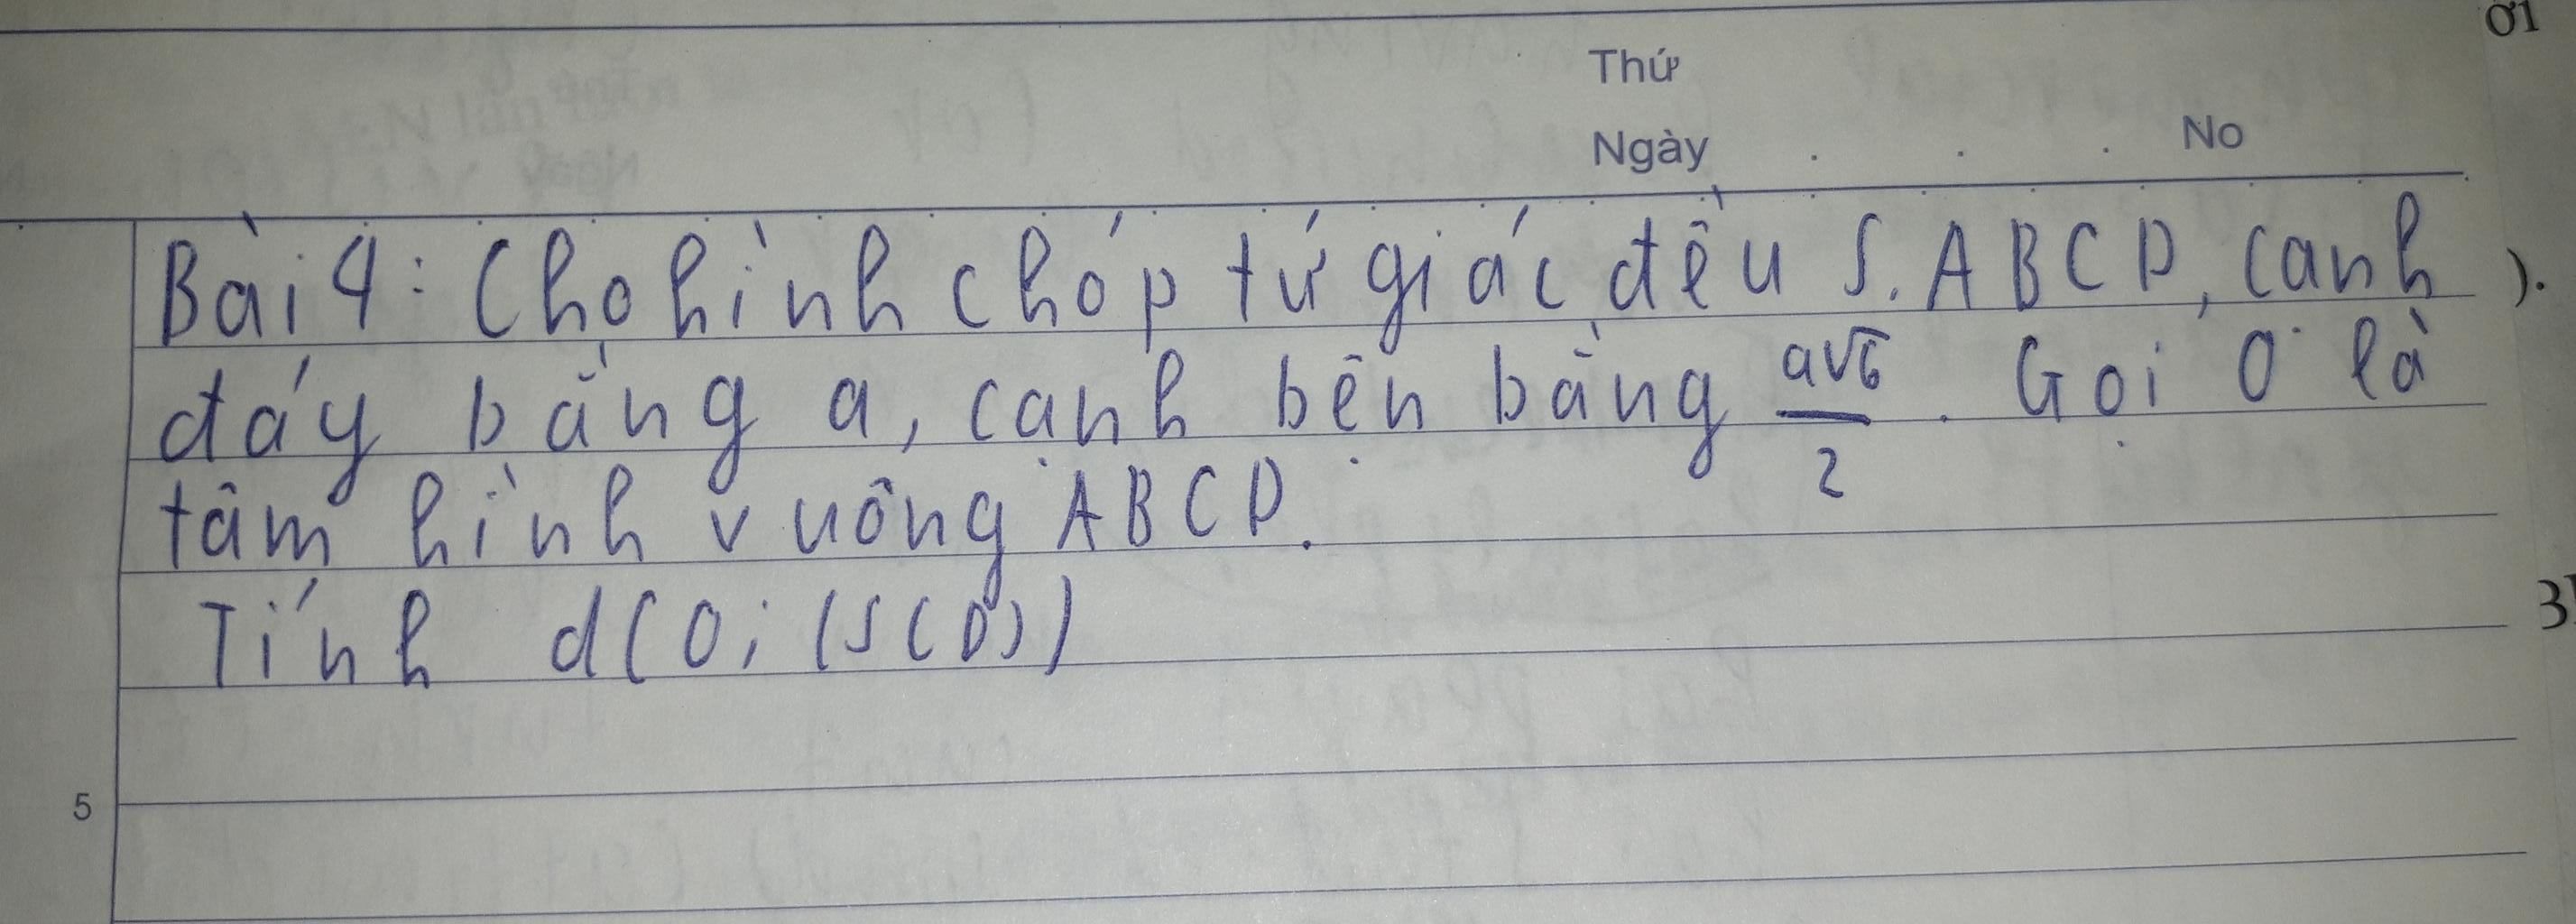 01
Thứ
Ngày . . . No
Bài 4: Cho hình chóp tứ giác đều S.ABCD, cạnh ).
đáy bằng a, cạnh bên bằng $\frac{a\sqrt{6}}{2}$. Gọi O là
tâm hình vuông ABCD.
Tính d(O; (SCD))
3
5